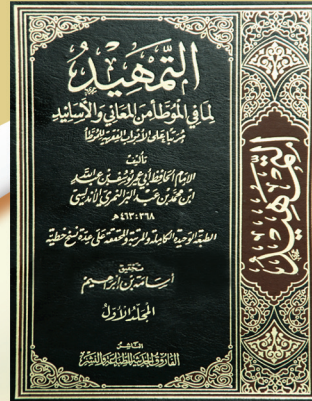 التمهيد
لما في الموطأ من المعاني والأسانيد
مرتبا على الأبواب الفقهية للموطأ
تأليف
الإمام الحافظ أبي عمر يوسف بن عبد الله
ابن محمد بن عبد البر النمري الأندلسي
٣٦٨-٤٦٣هـ
الطبعة الوحيدة الكاملة والمرتبة والمحققة على عدة نسخ خطية
تحقيق
أسامة بن إبرهيم
المجلد الأول
الناشر
الفاروق الحديثة للطباعة والنشر
التمهيد